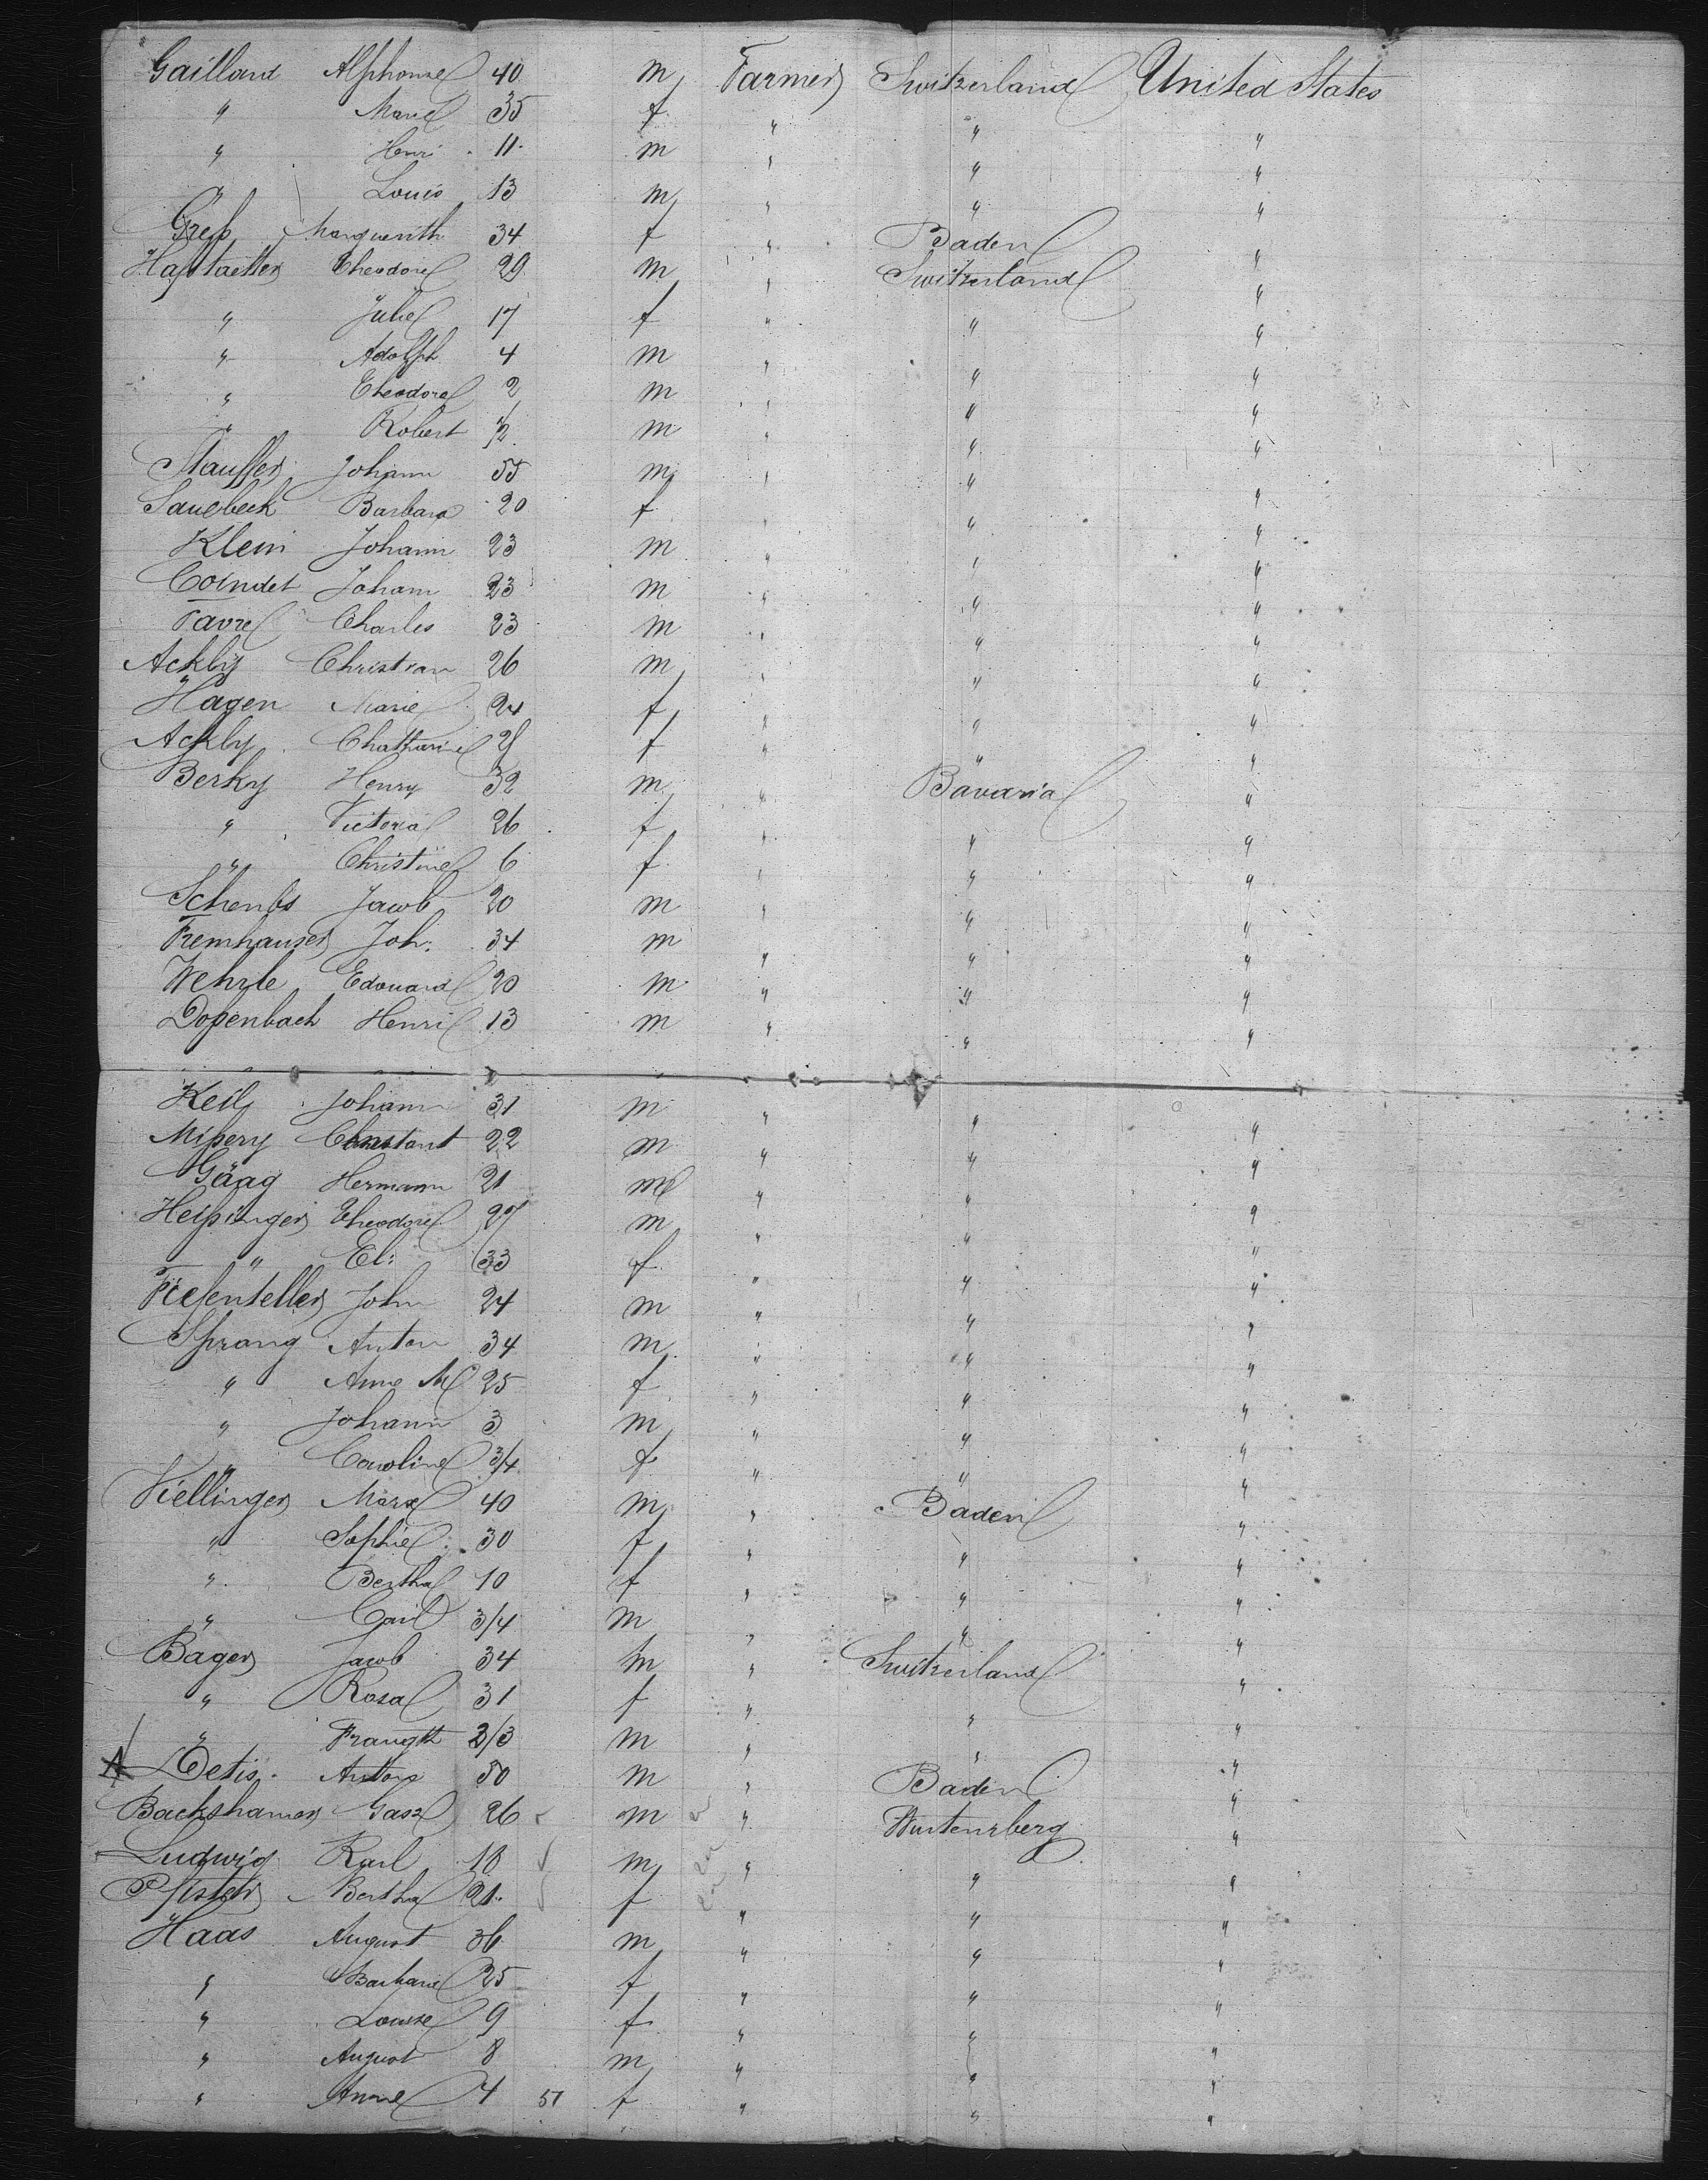 Gaillard Alphonse 40 m Farmer Switzerland United States
" Marie 35 f " " "
" Henri 11 m " " "
" Louis 13 m " " "
Greß Marguerith 34 f " Baden "
Haßtaetter Theodore 29 m " Switzerland "
" Julie 17 f " " "
" Adolph 4 m " " "
" Theodore 2 m " " "
" Robert 1/2 m " " "
Stauffer Johann 55 m " " "
Sauerbeck Barbara 20 f " " "
Klein Johann 23 m " " "
Coindet Johann 23 m " " "
Favre Charles 23 m " " "
Ackby Christian 26 m " " "
Hagen Marie 24 f " " "
Ackby Chatharine f " " "
Berky Henry 32 m " Bavaria "
" Victoria 26 f " " "
" Christine 6 f " " "
Jacob 20 m " " "
Fremhauser Joh: 34 m " " "
Wehrle Edouard 20 m " " "
Dopenbach Henri 13 m " " "
Keily Johann 31 m " " "
Mißery Constant 22 m " " "
Gäag Hermann 21 m " " "
Heißinger Theodore 27 m " " "
" El: 33 f " " "
Tiefenteller John 24 m " " "
Sprang Anton 34 m " " "
" Anne M 25 f " " "
" Johann 3 m " " "
" Caroline 3/4 f " " "
Viellinger Marx 40 m " Baden "
" Sophie 30 f " " "
" Bertha 10 f " " "
" Carl 3/4 m " " "
Bager Jacob 34 m " Switzerland "
" Rosa 31 f " " "
" 2/3 m " " "
Oetis Anton 50 m " Baden "
Backshamer 26 m " Wurtemberg "
Ludwig Karl 18 m " " "
Pfister Bertha 21 f " " "
Haas August 36 m " " "
" Barbara 25 f " " "
" Louise 9 f " " "
" August 8 m " " "
" Anne 4 51 f " " "